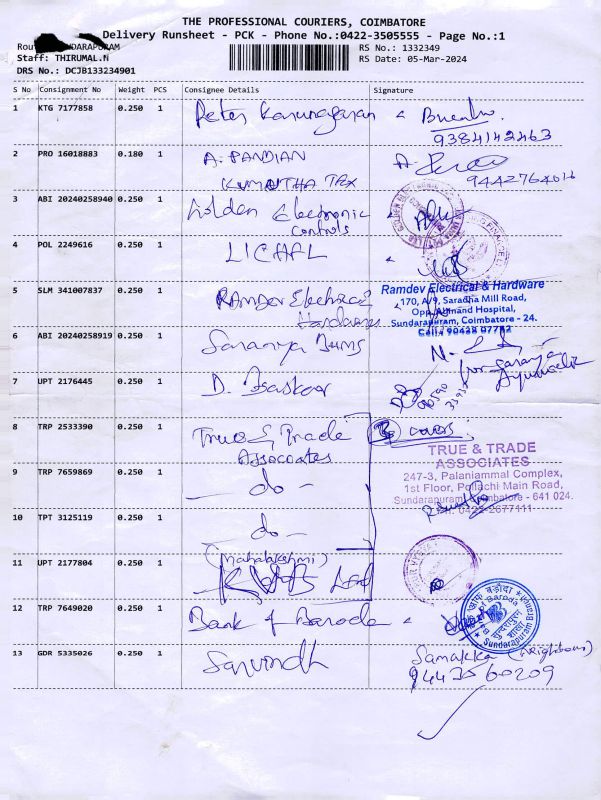 THE PROFESSIONAL COURIERS, COIMBATORE
Delivery Runsheet - PCK - Phone No.:0422-3505555 - Page No.:1
Rou DARAPURAM
RS No.: 1332349
Staff: THIRUMAL.N
RS Date: 05-Mar-2024
DRS No.: DCJB133234901
S No Consignment No Weight PCS Consignee Details Signature
1 KTG 7177858 0.250 1 Peter Karunagaran
9384142463
2 PRO 16018883 0.180 1 A. PANDIAN
KUMUTHA TEX
3 ABI 20240258940 0.250 1 Golden Electronic
controls
4 POL 2249616 0.250 1 LICHFL
5 SLM 341007837 0.250 1 Ramdev Electrical
Hardwares
Ramdev Electrical & Hardware
170, A/9, Saradha Mill Road,
Opp. Abinand Hospital,
Sundarapuram, Coimbatore - 24.
Cell: 90428 07752
6 ABI 20240258919 0.250 1 Saranya
for Saranya
7 UPT 2176445 0.250 1 D. Baskar
8 TRP 2533390 0.250 1 True & Trade
Associates
3 covers
TRUE & TRADE
ASSOCIATES
247-3, Palaniammal Complex,
1st Floor, Pollachi Main Road,
Sundarapuram, Coimbatore - 641 024.
Ph: 0422-2677111
9 TRP 7659869 0.250 1 — do —
10 TPT 3125119 0.250 1 do —
11 UPT 2177804 0.250 1 (Mahalakshmi)
12 TRP 7649020 0.250 1 Bank of Baroda
Bank of Baroda
Sundarapuram Branch
13 GDR 5335026 0.250 1 Sarvindh
Samakka (neighbour)
9443560209